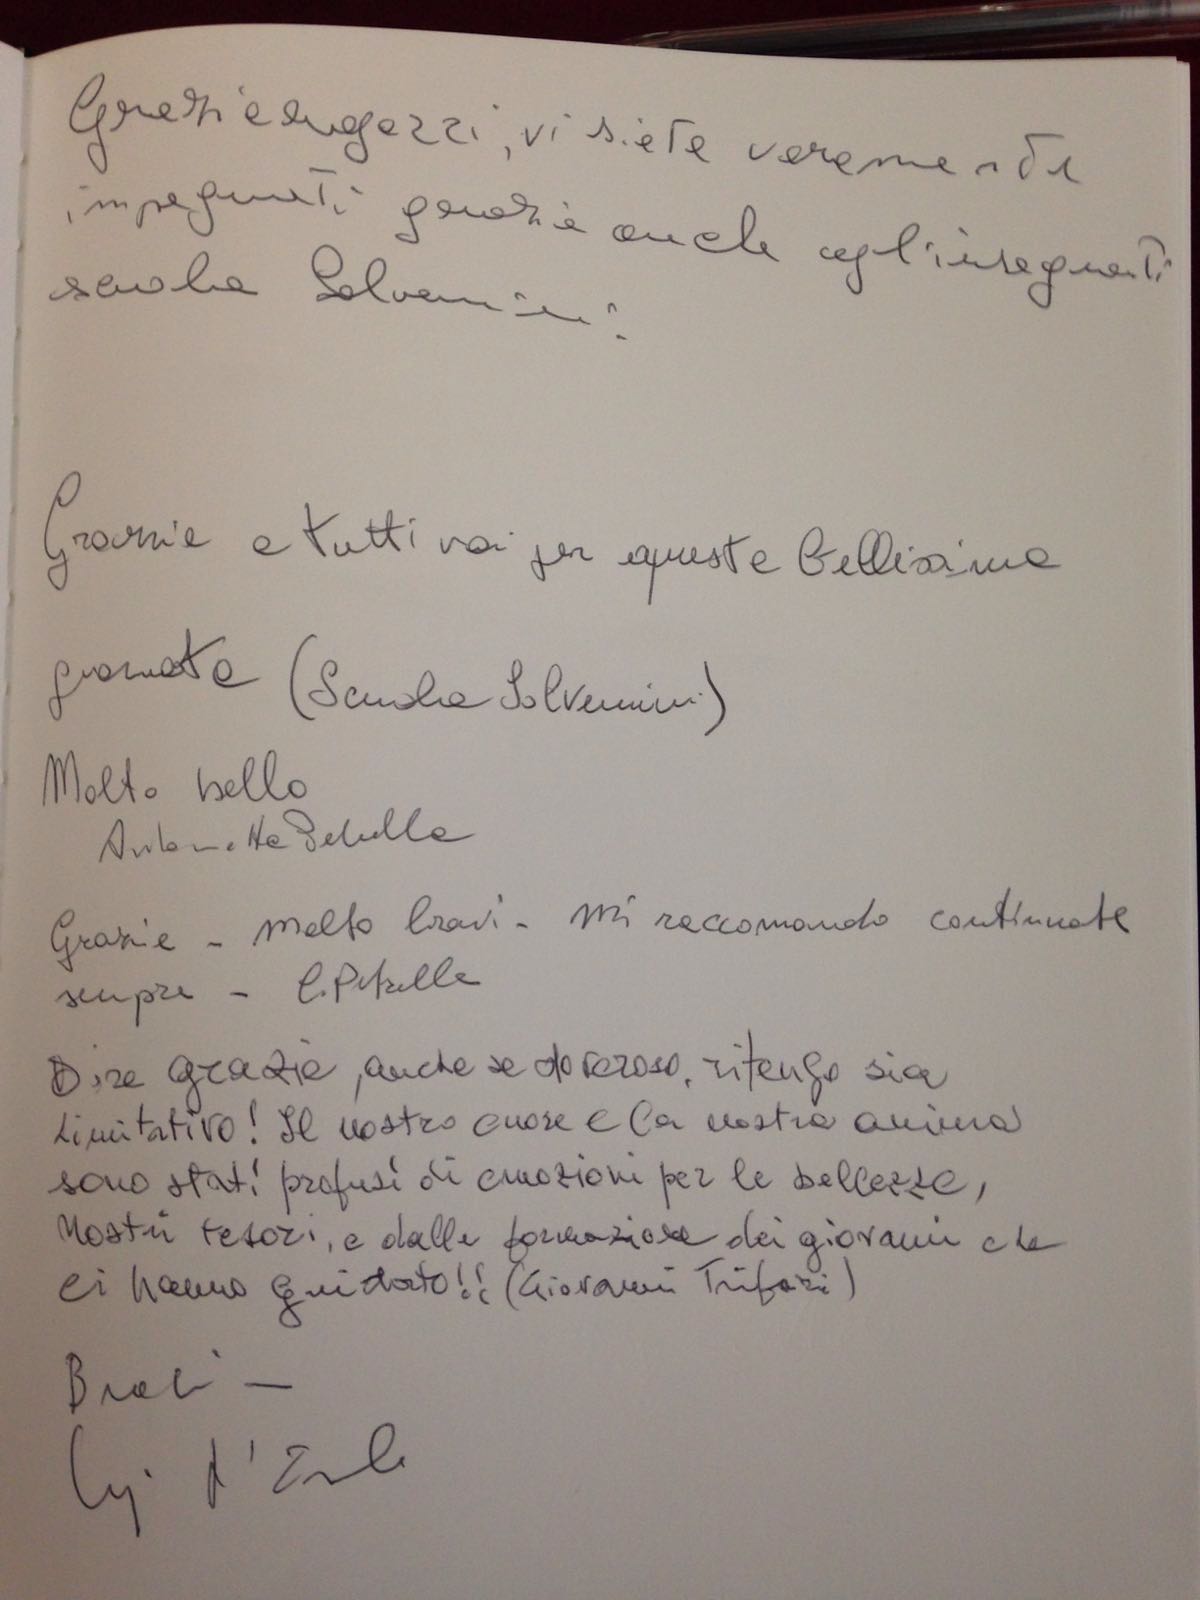 Grazie ragazzi, vi siete veramente
impegnati grazie anche agl'insegnanti
scuola Salvemini.
Grazie a tutti voi per questa bellissima
giornata (Scuola Salvemini)
Molto bello
Antonietta Petrella
Grazie - molto bravi - mi raccomando continuate
sempre - C. Petrella
Dire grazie, anche se doveroso, ritengo sia
limitativo! Il nostro cuore e la nostra anima
sono stati profusi di emozioni per le bellezze,
nostri tesori, e dalla formazione dei giovani che
ci hanno guidato!! (Giovanni Trifari)
Bravi -